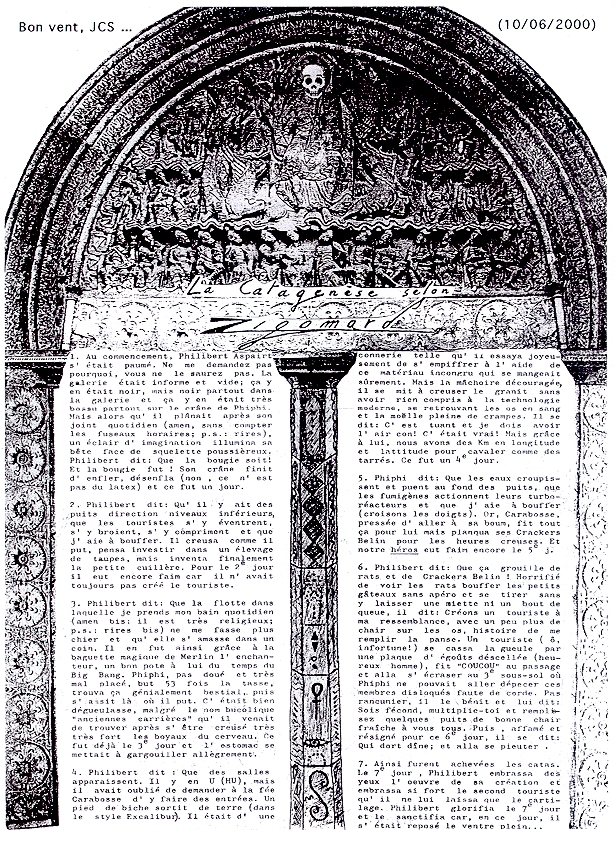 Bon vent, JCS ...
(10/06/2000)
La Catagenèse selon
Zigomard
1. Au commencement, Philibert Aspairt
s' était paumé. Ne me demandez pas
pourquoi, vous ne le saurez pas. La
galerie était informe et vide; ça y
en était noir, mais noir partout dans
la galerie et ça y en était très
bossu partout sur le crâne de Phiphi.
Mais alors qu' il plânait après son
joint quotidien (amen, sans compter
les fuseaux horaires; p.s.: rires),
un éclair d' imagination illumina sa
bête face de squelette poussiéreux.
Philibert dit: Que la bougie soit!
Et la bougie fut ! Son crâne finit
d' enfler, désenfla (non , ce n' est
pas du latex) et ce fut un jour.
2. Philibert dit: Qu' il y ait des
puits direction niveaux inférieurs,
que les touristes s' y éventrent,
s' y broient, s' y compriment et que
j' aie à bouffer. Il creusa comme il
put, pensa investir dans un élevage
de taupes, mais inventa finalement
la petite cuillère. Pour le 2e jour
il eut encore faim car il n' avait
toujours pas créé le touriste.
3. Philibert dit: Que la flotte dans
laquelle je prends mon bain quotidien
(amen bis: il est très religieux;
p.s.: rires bis) ne me fasse plus
chier et qu' elle s' amasse dans un
coin. Il en fut ainsi grâce à la
baguette magique de Merlin l' enchan-
teur, un bon pote à lui du temps du
Big Bang. Phiphi, pas doué et très
mal placé, but 53 fois la tasse,
trouva ça génialement bestial, puis
s' assit là où il put. C' était bien
dégueulasse, malgré le nom bucolique
"anciennes carrières" qu' il venait
de trouver après s' être creusé très
très fort les boyaux du cerveau. Ce
fut déjà le 3e jour et l' estomac se
mettait à gargouiller allègrement.
4. Philibert dit: Que des salles
apparaissent. Il y en U (HU), mais
il avait oublié de demander à la fée
Carabosse d' y faire des entrées. Un
pied de biche sortit de terre (dans
le style Excalibur). Il était d' une
connerie telle qu' il essaya joyeu-
sement de s' empiffrer à l' aide de
ce matériau incongru qui se mangerait
sûrement. Mais la mâchoire découragée,
il se mit à creuser le granit sans
avoir rien compris à la technologie
moderne, se retrouvant les os en sang
et la moëlle pleine de crampes. Il se
dit: C' est tuant et je dois avoir
l' air con! C' était vrai! Mais grâce
à lui, nous avons des Km en longitude
et lattitude pour cavaler comme des
tarrés. Ce fut un 4e jour.
5. Phiphi dit: Que les eaux croupis-
sent et puent au fond des puits, que
les fumigènes actionnent leurs turbo-
réacteurs et que j' aie à bouffer
(croisons les doigts). Or, Carabosse,
pressée d' aller à sa boum, fit tout
ça pour lui mais planqua ses Crackers
Belin pour les heures creuses. Et
notre héros eut faim encore le 5e j.
6. Philibert dit: Que ça grouille de
rats et de Crackers Belin ! Horrifié
de voir les rats bouffer les petits
gâteaux sans apéro et se tirer sans
y laisser une miette ni un bout de
queue, il dit: Créons un touriste à
ma ressemblance, avec un peu plus de
chair sur les os, histoire de me
remplir la panse. Un touriste ( ô,
infortune!) se cassa la gueule par
une plaque d' égoûts déscellée (heu-
reux homme), fit "COUCOU" au passage
et alla s' écraser au 3e sous-sol où
Phiphi ne pouvait aller dépecer ces
membres disloqués faute de corde. Pas
rancunier, il le bénit et lui dit:
Sois fécond, multiplie-toi et remplis-
sez quelques puits de bonne chair
fraîche à vous tous. Puis , affamé et
résigné pour ce 6e jour, il se dit:
Qui dort dîne; et alla se pieuter .
7. Ainsi furent achevées les catas.
Le 7e jour , Philibert embrassa des
yeux l' oeuvre de sa création et
embrassa si fort le second touriste
qu' il ne lui laissa que le carti-
lage. Philibert glorifia le 7e jour
et le sanctifia car, en ce jour, il
s' était reposé le ventre plein...